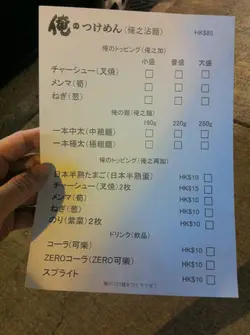 俺のつけめん(俺之沾麵) HK$85
俺のトッピング(俺之加)
小盛 普盛 大盛
チャーシュー(叉焼)
メンマ(筍)
ねぎ(葱)
俺の麺(俺之麵)
160g 220g 250g
一本中太(中粗麵)
一本極太(極粗麵)
俺のトッピング(俺之再加)
日本半熟たまご(日本半熟蛋) HK$10
チャーシュー(叉焼)2枚 HK$15
メンマ(筍) HK$10
ねぎ(葱) HK$10
のり(紫菜)2枚 HK$10
ドリンク(飲品)
コーラ(可樂) HK$10
ZEROコーラ(ZERO可樂) HK$10
スプライト HK$10